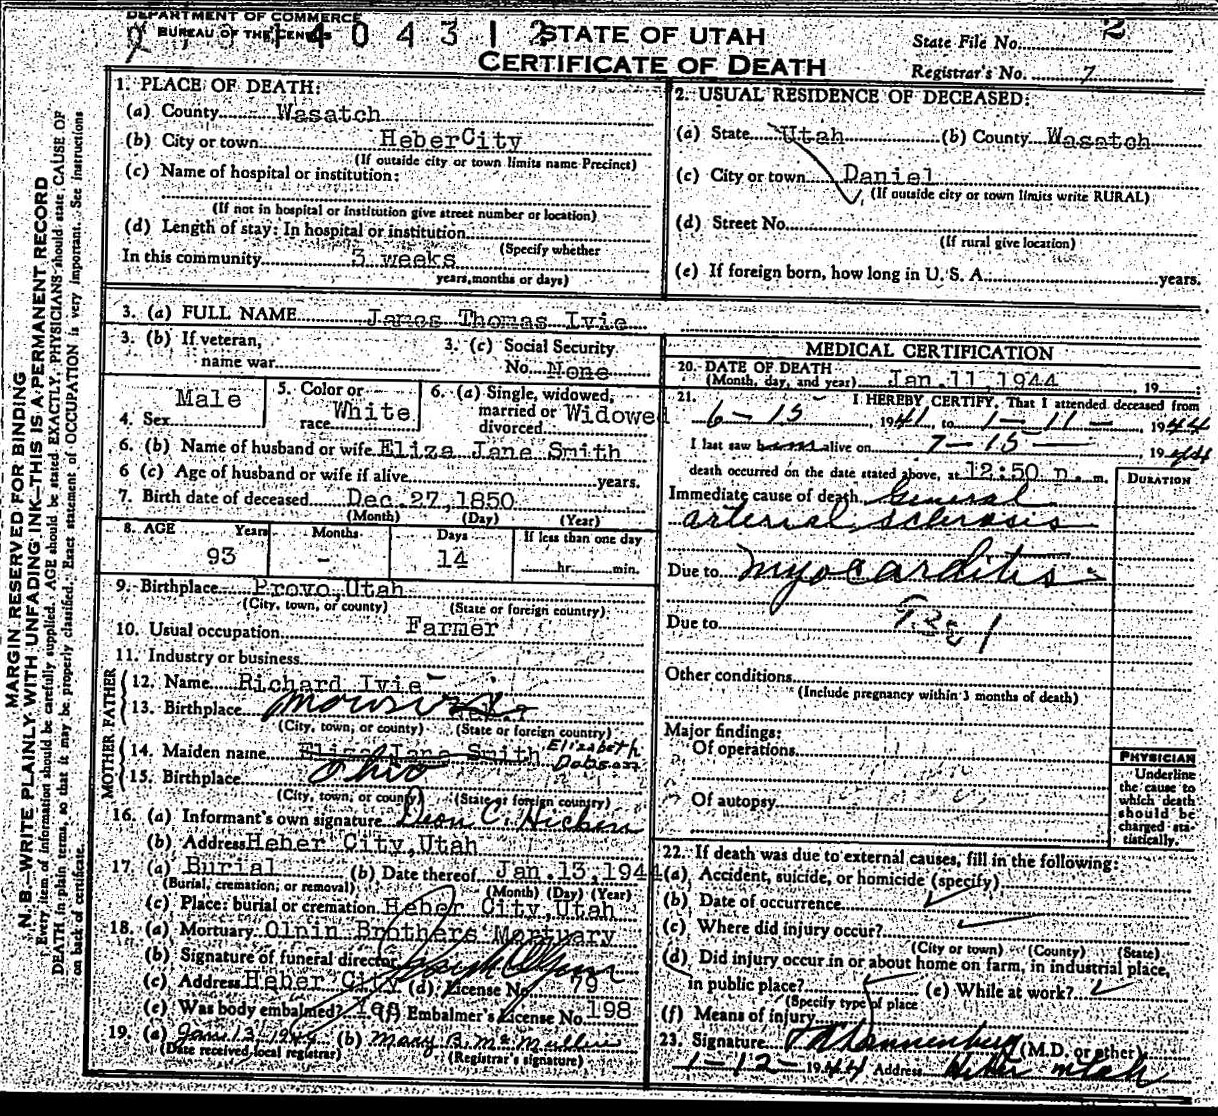 DEPARTMENT OF COMMERCE
BUREAU OF THE CENSUS
404312
STATE OF UTAH
CERTIFICATE OF DEATH
State File No. 2
Registrar's No. 7
MARGIN RESERVED FOR BINDING
N. B.—WRITE PLAINLY WITH UNFADING INK—THIS IS A PERMANENT RECORD
Every item of information should be carefully supplied. AGE should be stated EXACTLY. PHYSICIANS should state CAUSE OF
DEATH in plain terms, so that it may be properly classified. Exact statement of OCCUPATION is very important. See instructions
on back of certificate.
1. PLACE OF DEATH:
(a) County Wasatch
(b) City or town Heber City
(If outside city or town limits name Precinct)
(c) Name of hospital or institution:
(If not in hospital or institution give street number or location)
(d) Length of stay: In hospital or institution
(Specify whether
In this community 3 weeks
years, months or days)
2. USUAL RESIDENCE OF DECEASED:
(a) State Utah (b) County Wasatch
(c) City or town Daniel
(If outside city or town limits write RURAL)
(d) Street No.
(If rural give location)
(e) If foreign born, how long in U. S. A. years.
3. (a) FULL NAME James Thomas Ivie
3. (b) If veteran,
name war
3. (c) Social Security
No. None
4. Sex Male
5. Color or
race White
6. (a) Single, widowed,
married or
divorced Widowed
6. (b) Name of husband or wife Eliza Jane Smith
6 (c) Age of husband or wife if alive years.
7. Birth date of deceased Dec. 27, 1850
(Month) (Day) (Year)
8. AGE Years Months Days If less than one day
93 - 14 hr. min.
9. Birthplace Provo, Utah
(City, town, or county) (State or foreign country)
10. Usual occupation Farmer
11. Industry or business
FATHER
12. Name Richard Ivie
13. Birthplace
(City, town, or county) (State or foreign country)
MOTHER
14. Maiden name Eliza Jane Smith Elizabeth
Dobson
15. Birthplace Ohio
(City, town, or county) (State or foreign country)
16. (a) Informant's own signature Deon C.
(b) Address Heber City, Utah
17. (a) Burial (b) Date thereof Jan. 13, 1944
(Burial, cremation, or removal) (Month) (Day) (Year)
(c) Place: burial or cremation Heber City, Utah
18. (a) Mortuary Olpin Brothers Mortuary
(b) Signature of funeral director
(c) Address Heber City (d) License No. 79
(e) Was body embalmed? (f) Embalmer's License No. 198
19. (a) Jan 13, 1944 (b) Mary B. McMullin
(Date received local registrar) (Registrar's signature)
MEDICAL CERTIFICATION
20. DATE OF DEATH
(Month, day, and year) Jan. 11, 1944, 19
21. I HEREBY CERTIFY, That I attended deceased from
6-15 1941, to 1-11- 1944
I last saw him alive on 7-15- 1944
death occurred on the date stated above, at 12:50 p. m.
DURATION
Immediate cause of death General
arterial sclerosis
Due to Myocarditis
Due to
Other conditions
(Include pregnancy within 3 months of death)
Major findings:
Of operations
Of autopsy
PHYSICIAN
Underline
the cause to
which death
should be
charged sta-
tistically.
22. If death was due to external causes, fill in the following:
(a) Accident, suicide, or homicide (specify)
(b) Date of occurrence
(c) Where did injury occur?
(City or town) (County) (State)
(d) Did injury occur in or about home on farm, in industrial place,
in public place? (e) While at work?
(Specify type of place
(f) Means of injury
23. Signature (M.D. or other)
1-12-1944 Address Heber Utah